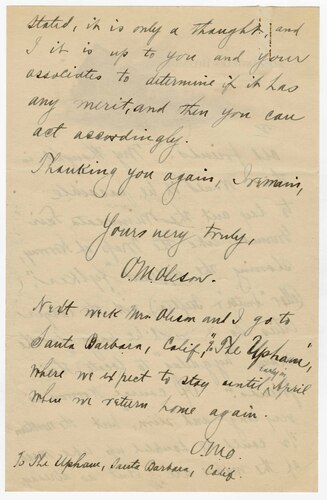 stated, it is only a thought, and
I it is up to you and your
associates to determine if it has
any merit, and then you can
act accordingly.
Thanking you again, I remain,
Yours very truly,
O.M. Oleson.
Next week Mrs. Oleson and I go to
Santa Barbara, Calif., "The Upham",
where we expect to stay until early in April
when we return home again.
O.M.O.
To The Upham, Santa Barbara, Calif.